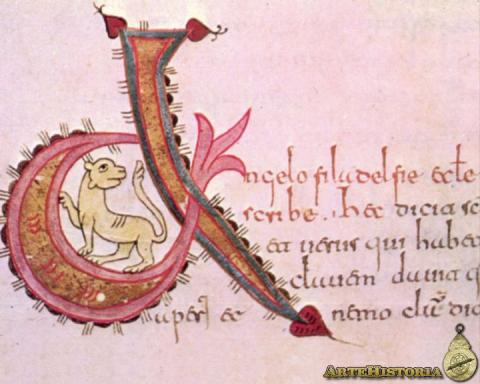 Angelo filadelfie ecłe
scribe. hec dicit sc
et verus qui habet
clavem david q
uperit et nemo clu dic
ARTEHISTORIA